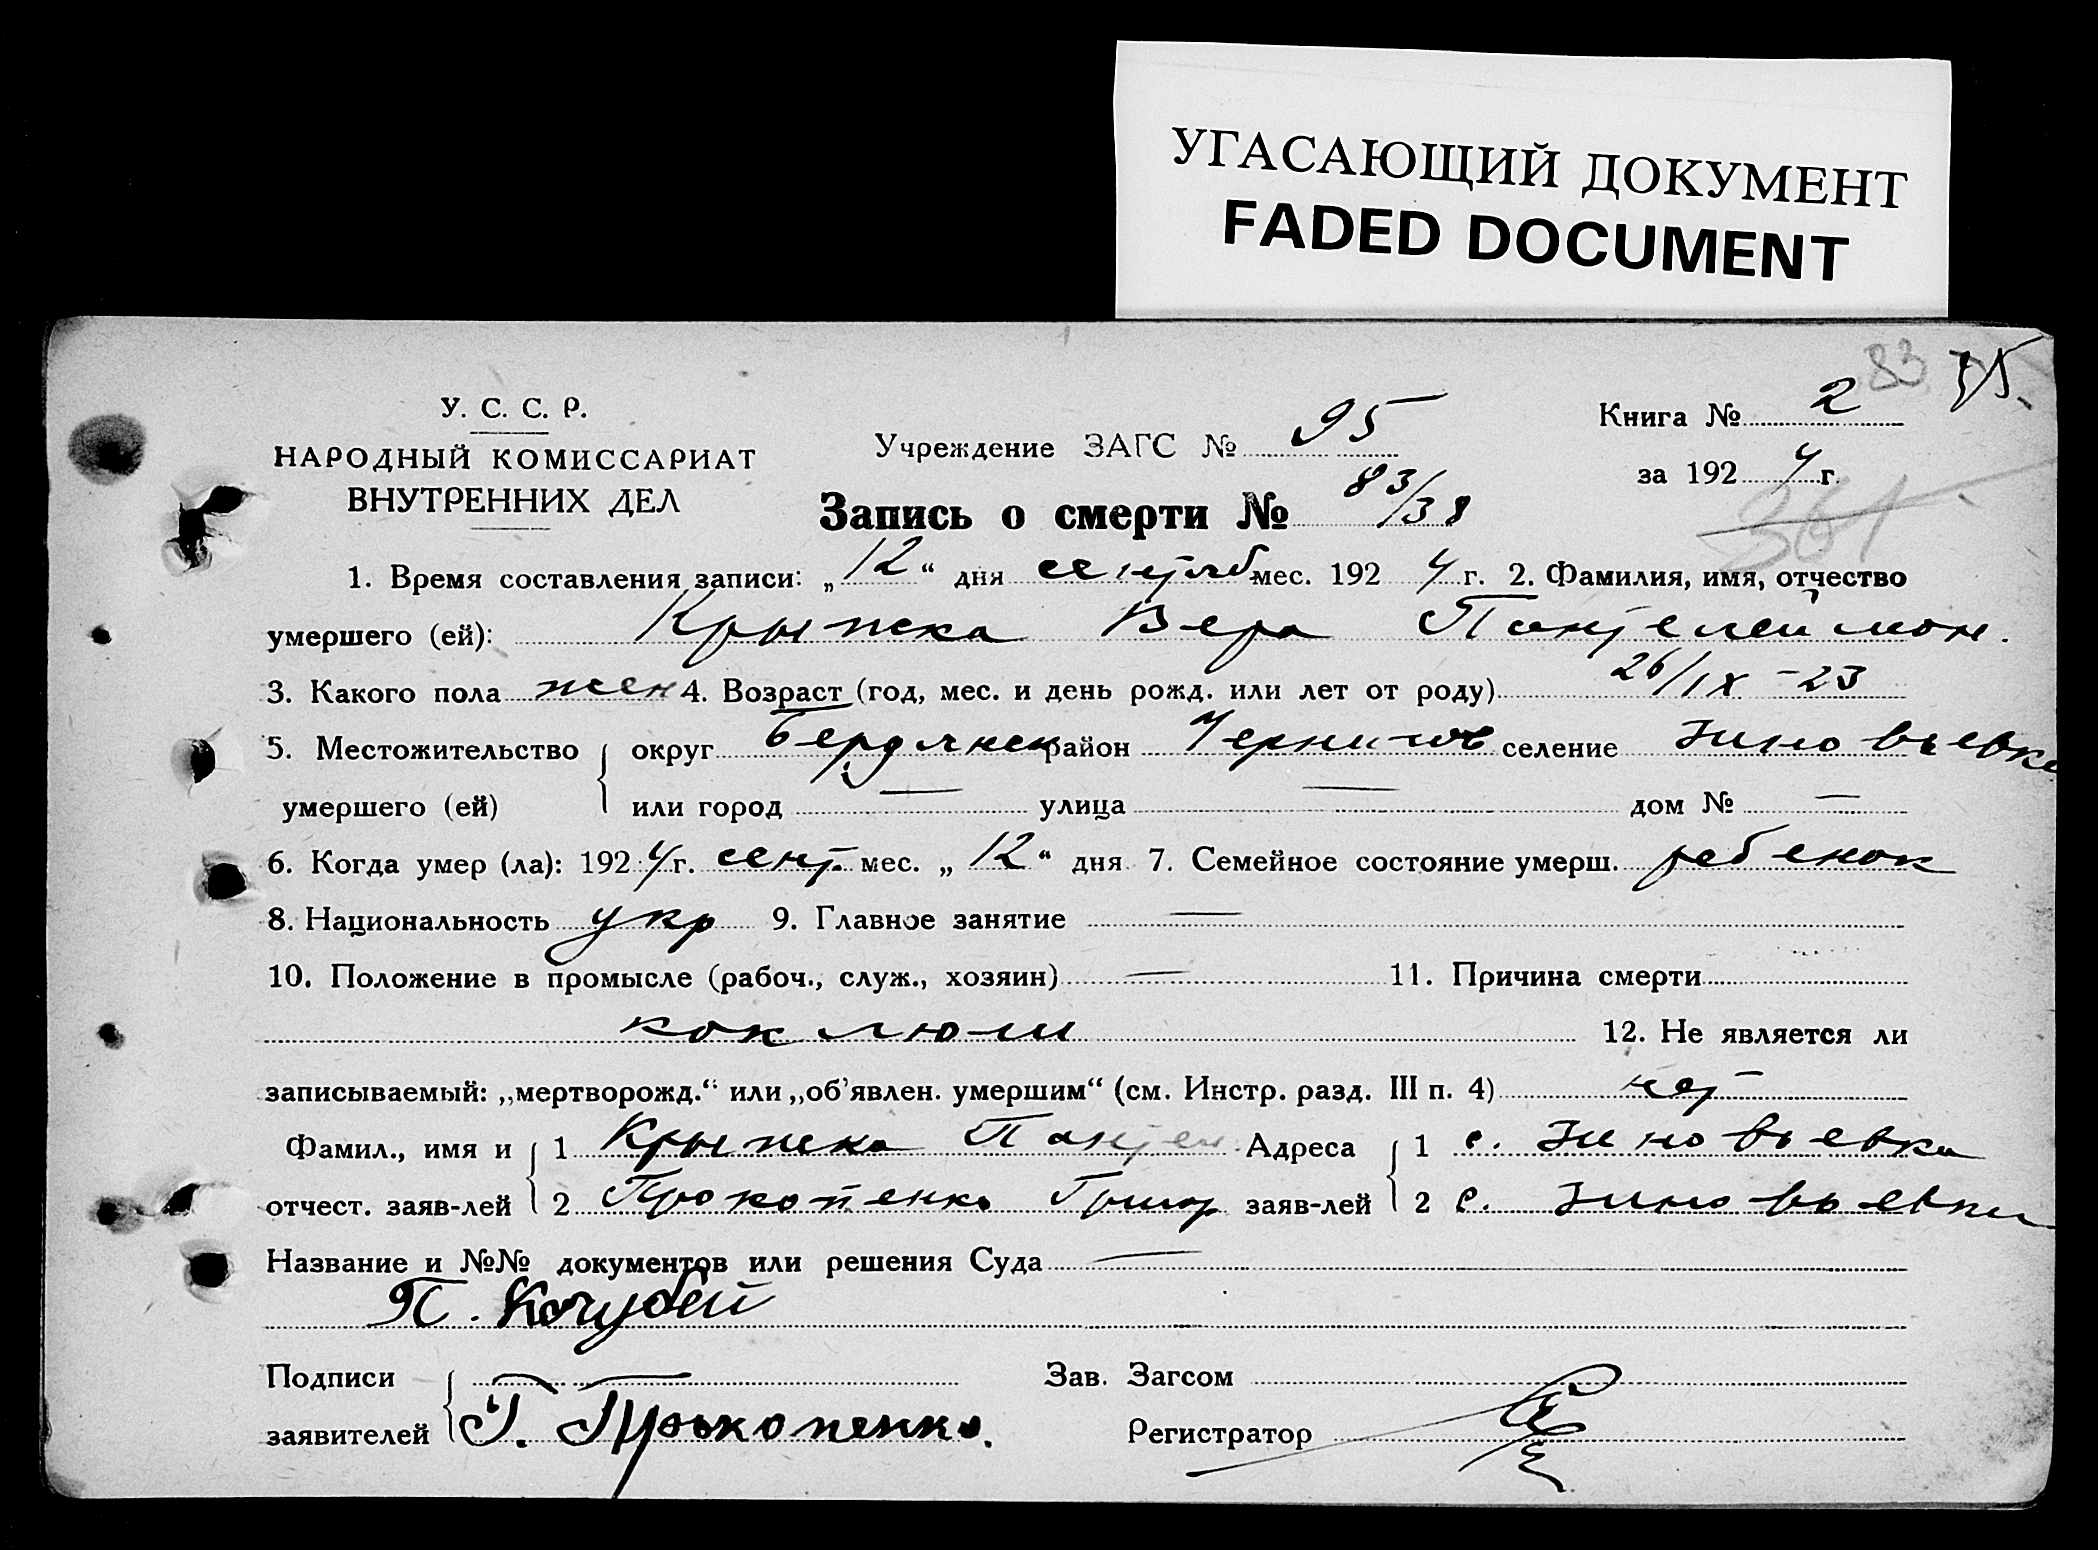 УГАСАЮЩИЙ ДОКУМЕНТ
FADED DOCUMENT
83
У. С. С. Р.
НАРОДНЫЙ КОМИССАРИАТ
ВНУТРЕННИХ ДЕЛ
Учреждение ЗАГС № 95
Книга № 2
за 1924 г.
361
Запись о смерти № 83/38
1. Время составления записи: „12“ дня сентяб мес. 1924 г. 2. Фамилия, имя, отчество
умершего (ей): Крыжска Вера Пантелеймон.
3. Какого пола жен 4. Возраст (год, мес. и день рожд. или лет от роду) 26/IX -23
5. Местожительство округ Бердянск район Чернигов селение Зиновьевка
умершего (ей) или город — улица — дом № —
6. Когда умер (ла): 1924 г. сент. мес. „12“ дня 7. Семейное состояние умерш. ребенок
8. Национальность укр 9. Главное занятие —
10. Положение в промысле (рабоч., служ., хозяин) — 11. Причина смерти
коклюш 12. Не является ли
записываемый: „мертворожд.“ или „об’явлен. умершим“ (см. Инстр. разд. III п. 4) нет
Фамил., имя и 1 Крыжска Пантел Адреса 1 с. Зиновьевка
отчест. заяв-лей 2 Прокопенко Григор заяв-лей 2 с. Зиновьевки
Название и №№ документов или решения Суда —
П. Кочубей
Подписи Зав. Загсом
заявителей Г. Прокопенко. Регистратор